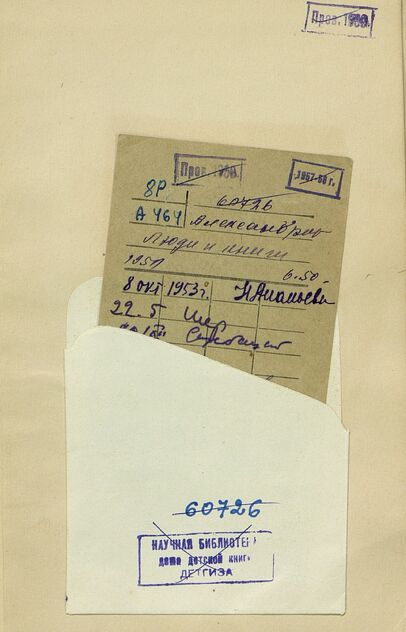 Пров. 1960.
Пров. 1960
1967-68 г.
8Р
60726
А 464 Александров
Люди и книги
1950 6.50
8 окт 1953г. Н Ананьева
22.5
60726
НАУЧНАЯ БИБЛИОТЕ
дома детской книг
ДЕТГИЗА